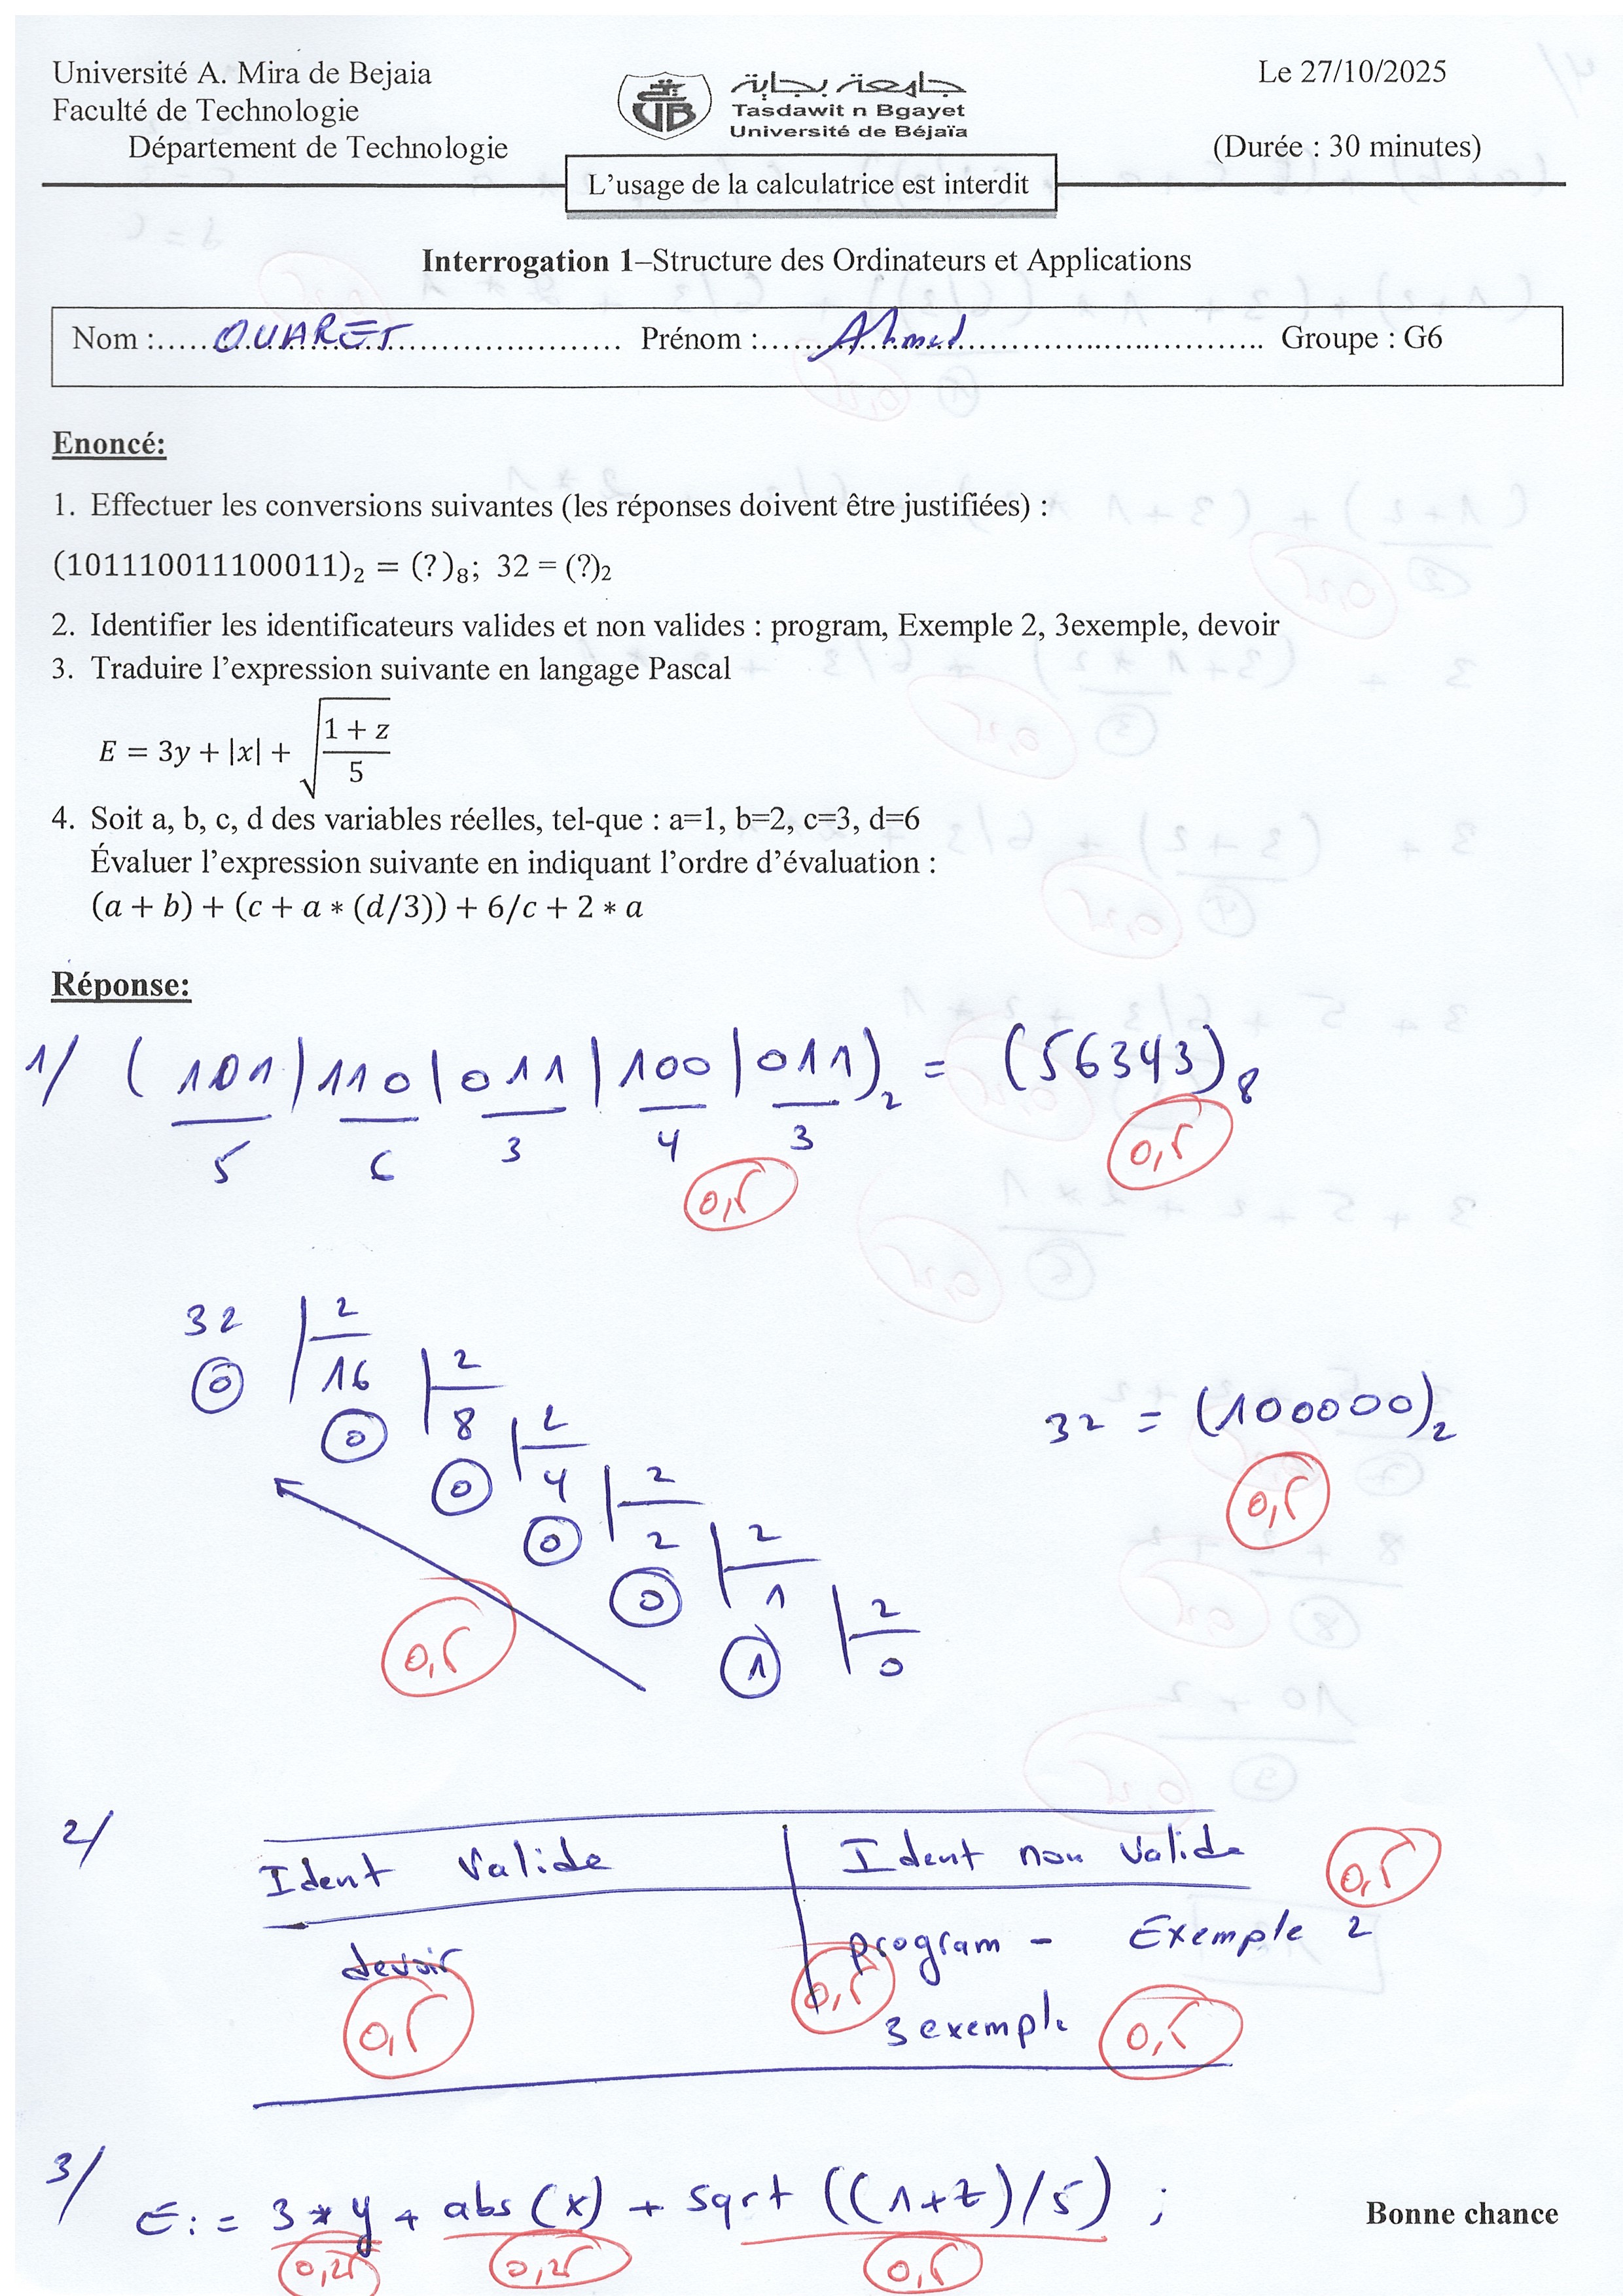 Université A. Mira de Bejaia
Faculté de Technologie
Département de Technologie
جامعة بجاية
Tasdawit n Bgayet
Université de Béjaïa
Le 27/10/2025
(Durée : 30 minutes)
L'usage de la calculatrice est interdit
Interrogation 1–Structure des Ordinateurs et Applications
Nom :..... OUARET ..... Prénom :..... Ahmed ..... Groupe : G6
Enoncé:
1. Effectuer les conversions suivantes (les réponses doivent être justifiées) :
(101110011100011)₂ = (?)₈; 32 = (?)₂
2. Identifier les identificateurs valides et non valides : program, Exemple 2, 3exemple, devoir
3. Traduire l'expression suivante en langage Pascal
E = 3y + |x| + √((1 + z)/5)
4. Soit a, b, c, d des variables réelles, tel-que : a=1, b=2, c=3, d=6
Évaluer l'expression suivante en indiquant l'ordre d'évaluation :
(a + b) + (c + a * (d/3)) + 6/c + 2 * a
Réponse:
1/ (101|110|011|100|011)₂ = (56343)₈
5 6 3 4 3
0,5 0,5
32 2
0 16 2
0 8 2
0 4 2
0 2 2
0 1 2
1 0
32 = (100000)₂
0,5
0,5
2/
Ident Valide Ident non Valide 0,5
devoir program - Exemple 2
0,5 0,5 3exemple 0,5
3/ E := 3 * y + abs(x) + sqrt((1+z)/5) ;
0,25 0,25 0,5
Bonne chance